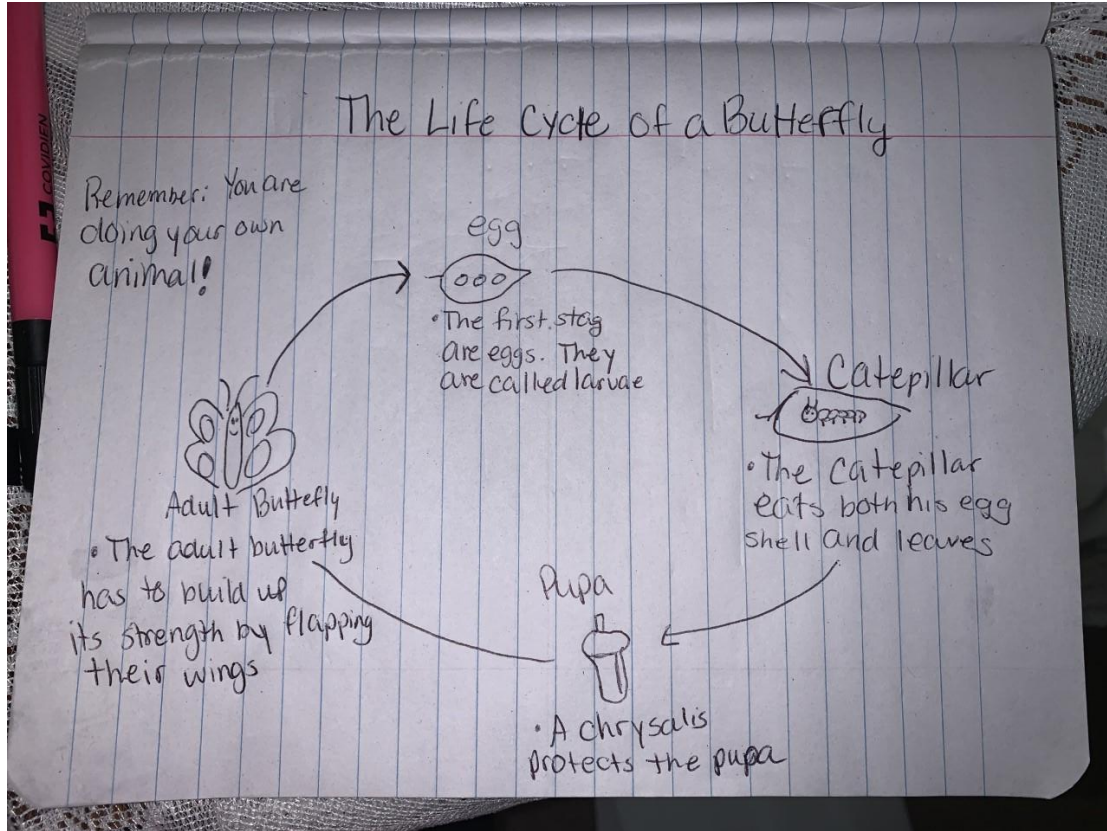 COVIDIEN
The Life Cycle of a Butterfly
Remember: You are
doing your own
animal!
egg
• The first stag
are eggs. They
are called larvae
Catepillar
• The Catepillar
eats both his egg
shell and leaves
Pupa
• A chrysalis
protects the pupa
Adult Buttefly
• The adult butterfly
has to build up
its strength by flapping
their wings